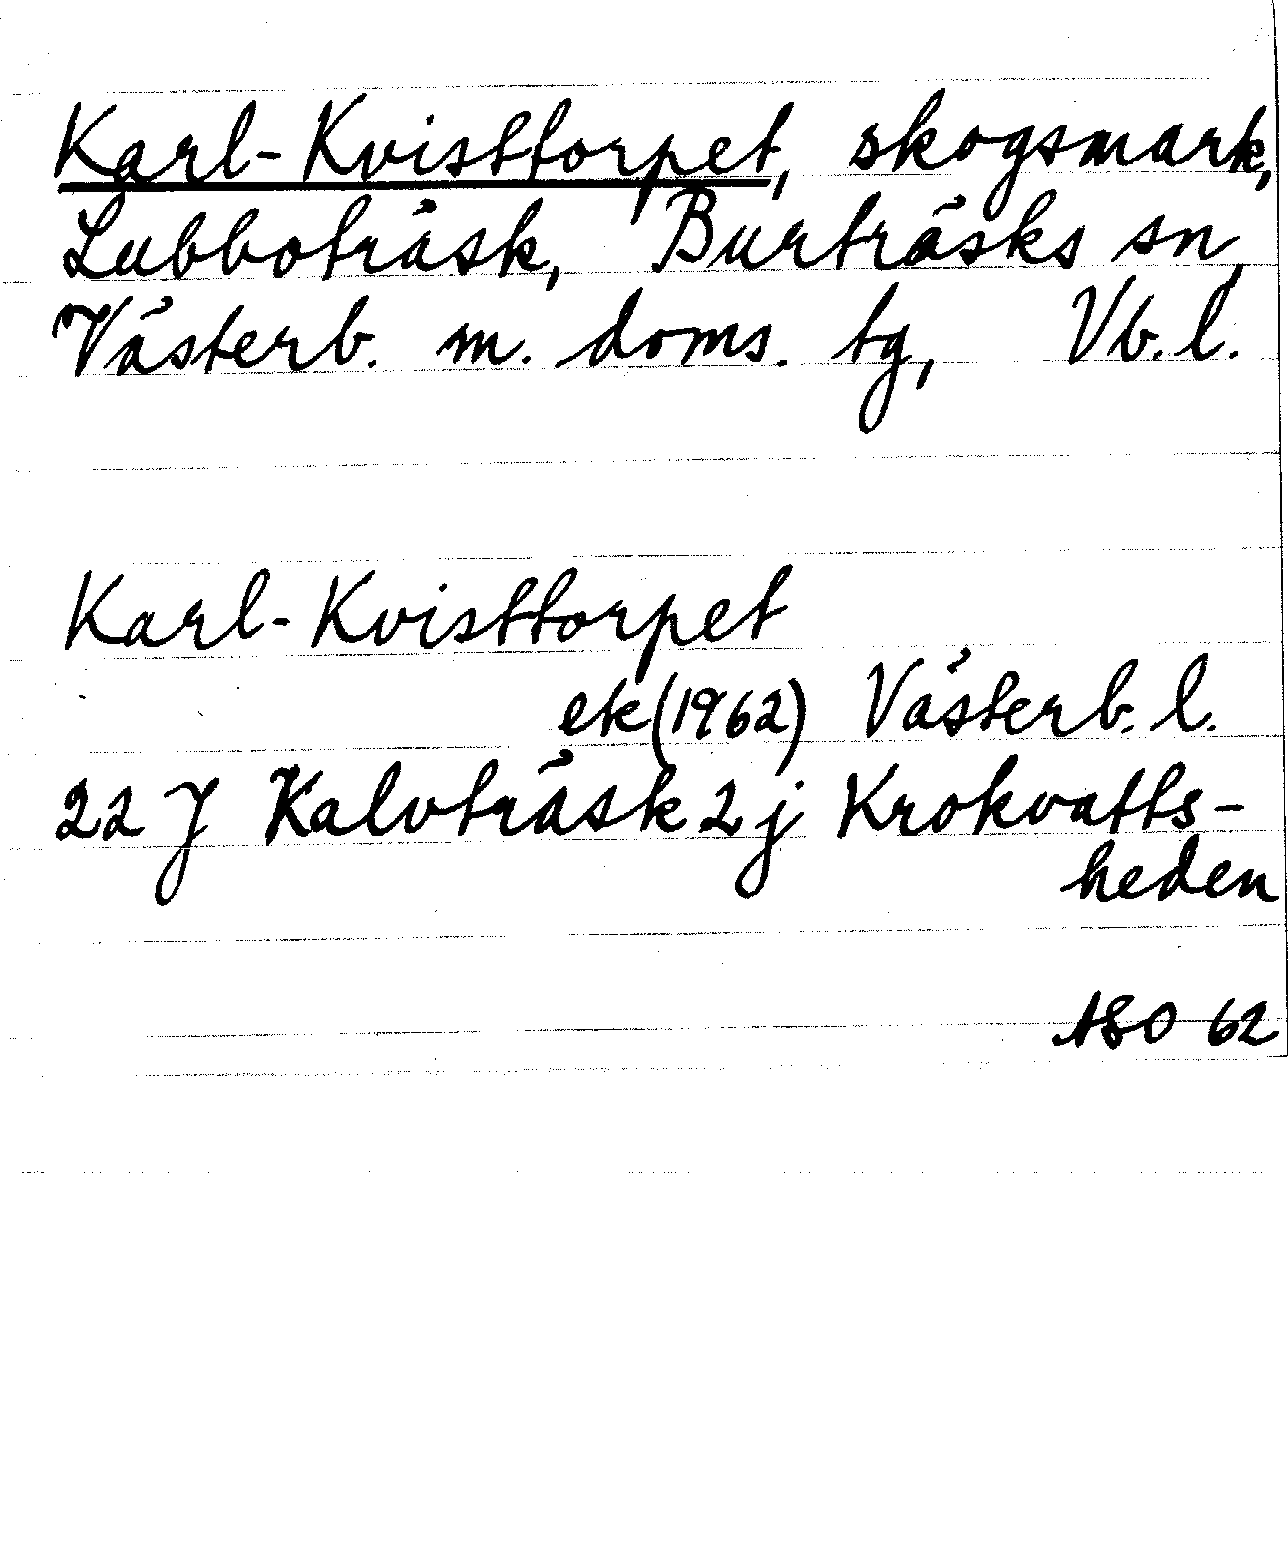 Karl-Kvisttorpet, skogsmark,
Lubboträsk, Burträsks sn,
Västerb. m. doms. tg, Vb. l.
Karl-Kvisttorpet
ek (1962) Västerb. l.
22 J Kalvträsk 2 j Krokvatts-
heden
ASO 62